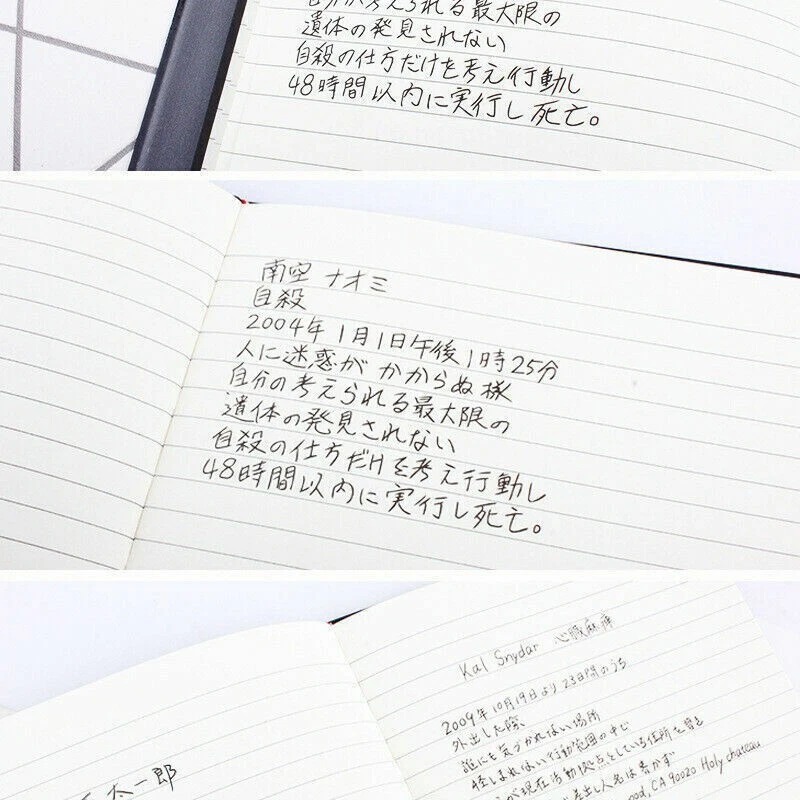 自分が考えられる最大限の
遺体の発見されない
自殺の仕方だけを考え行動し
48時間以内に実行し死亡。
南空 ナオミ
自殺
2004年1月1日午後1時25分
人に迷惑がかからぬ様
自分の考えられる最大限の
遺体の発見されない
自殺の仕方だけを考え行動し
48時間以内に実行し死亡。
Kal Snydar 心臓麻痺
2009年10月19日より23日間のうち
外出した際、
誰にも気づかれない場所
怪しまれない行動範囲の中で
が現在活動拠点としている住所を書き
差出し人名は書かず
ood, CA 90020 Holy chateau
太一郎